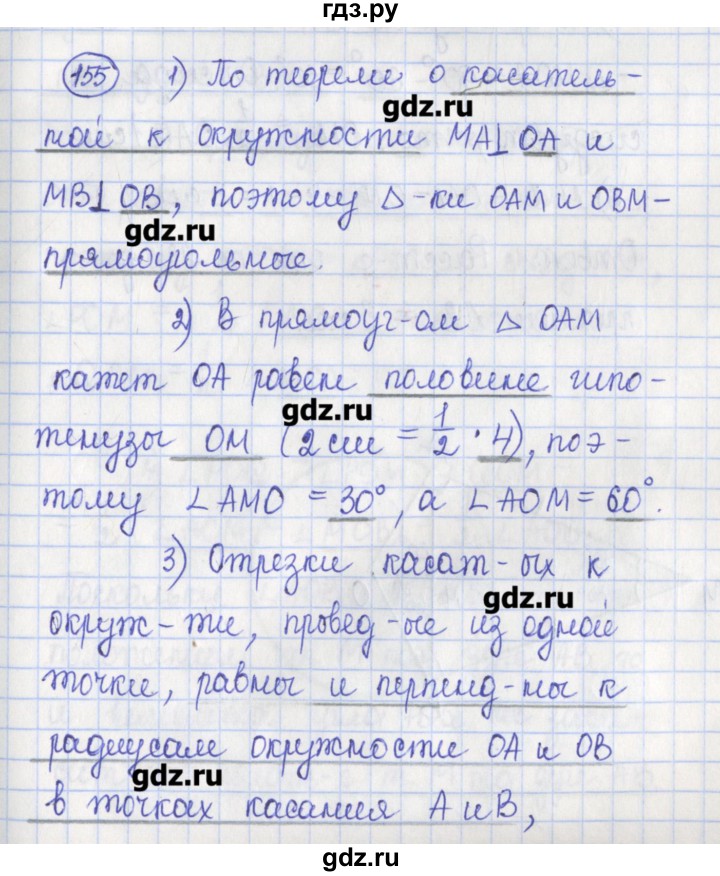 гдз.ру
155 1) По теореме о касатель-
gdz.ru
ной к окружности MA⊥OA и
MB⊥OB, поэтому △-ки OAM и OBM-
gdz.ru
прямоугольные.
2) В прямоуг-ом △ OAM
катет OA равен половине гипо-
gdz.ru
тенузы OM (2 см = 1/2 · 4), поэ-
тому ∠AMO = 30°, а ∠AOM = 60°.
3) Отрезки касат-ых к
gdz.ru
окруж-ти, провед-ые из одной
точки, равны и перпенд-ны к
радиусам окружности OA и OB
gdz.ru
в точках касания A и B,
gdz.ru